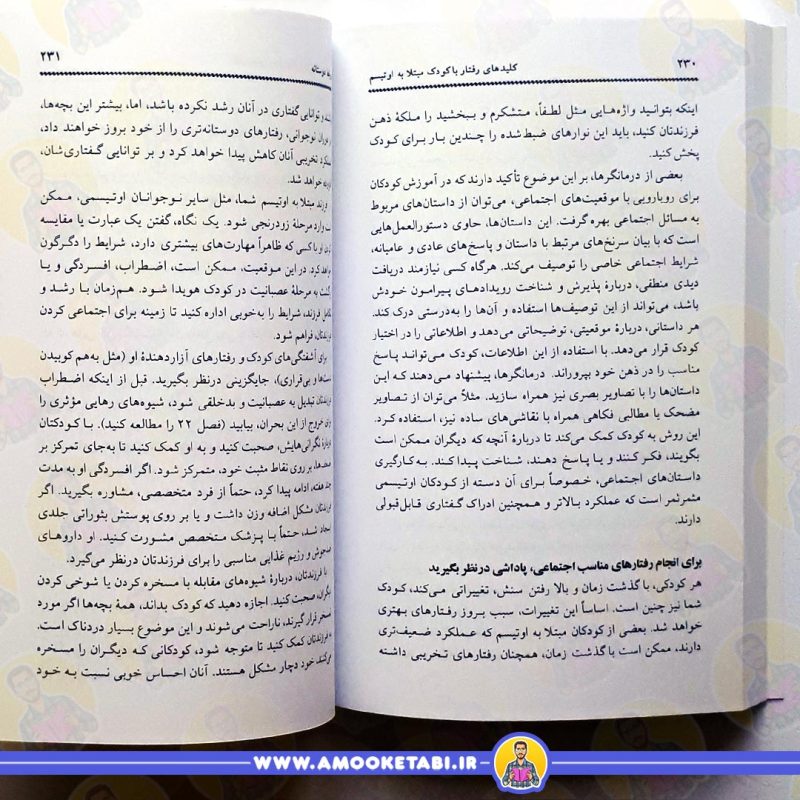 ۲۳۰
کلیدهای رفتار با کودک مبتلا به اوتیسم
اینکه بتوانید واژه‌هایی مثل لطفاً، متشکرم و ببخشید را ملکهٔ ذهن
فرزندتان کنید، باید این نوارهای ضبط‌شده را چندین بار برای کودک
پخش کنید.
بعضی از درمانگرها، بر این موضوع تأکید دارند که در آموزش کودکان
برای رویارویی با موقعیت‌های اجتماعی، می‌توان از داستان‌های مربوط
به مسائل اجتماعی بهره گرفت. این داستان‌ها، حاوی دستورالعمل‌هایی
است که با بیان سرنخ‌های مرتبط با داستان و پاسخ‌های عادی و عامیانه،
شرایط اجتماعی خاصی را توصیف می‌کند. هرگاه کسی نیازمند دریافت
دیدی منطقی، دربارهٔ پذیرش و شناخت رویدادهای پیرامون خودش
باشد، می‌تواند از این توصیف‌ها استفاده و آن‌ها را به‌درستی درک کند.
هر داستانی، دربارهٔ موقعیتی، توضیحاتی می‌دهد و اطلاعاتی را در اختیار
کودک قرار می‌دهد. با استفاده از این اطلاعات، کودک می‌تواند پاسخ
مناسب را در ذهن خود بپروراند. درمانگرها، پیشنهاد می‌دهند که این
داستان‌ها را با تصاویر بصری نیز همراه سازید. مثلاً می‌توان از تصاویر
مضحک یا مطالبی فکاهی همراه با نقاشی‌های ساده نیز، استفاده کرد.
این روش به کودک کمک می‌کند تا دربارهٔ آنچه که دیگران ممکن است
بگویند، فکر کنند و یا پاسخ دهند، شناخت پیدا کند. به کارگیری
داستان‌های اجتماعی، خصوصاً برای آن دسته از کودکان اوتیسمی
مثمرثمر است که عملکرد بالاتر و همچنین ادراک گفتاری قابل‌قبولی
دارند.
برای انجام رفتارهای مناسب اجتماعی، پاداشی درنظر بگیرید
هر کودکی، با گذشت زمان و بالا رفتن سنش، تغییراتی می‌کند، کودک
شما نیز چنین است. اساساً این تغییرات، سبب بروز رفتارهای بهتری
خواهد شد. بعضی از کودکان مبتلا به اوتیسم که عملکرد ضعیف‌تری
دارند، ممکن است با گذشت زمان، همچنان رفتارهای تخریبی داشته
دوستانه
۲۳۱
و توانایی گفتاری در آنان رشد نکرده باشد، اما، بیشتر این بچه‌ها،
نوجوانی، رفتارهای دوستانه‌تری را از خود بروز خواهند داد،
تخریبی آنان کاهش پیدا خواهد کرد و بر توانایی گفتاری‌شان،
خواهد شد.
مبتلا به اوتیسم شما، مثل سایر نوجوانان اوتیسمی، ممکن
وارد مرحلهٔ زودرنجی شود. یک نگاه، گفتن یک عبارت یا مقایسه
او با کسی که ظاهراً مهارت‌های بیشتری دارد، شرایط را دگرگون
کرد. در این موقعیت، ممکن است، اضطراب، افسردگی و یا
به مرحلهٔ عصبانیت در کودک هویدا شود. هم‌زمان با رشد و
فرزند، شرایط را به‌خوبی اداره کنید تا زمینه برای اجتماعی کردن
فراهم شود.
برای آشفتگی‌های کودک و رفتارهای آزاردهندهٔ او (مثل به‌هم کوبیدن
و بی‌قراری)، جایگزینی درنظر بگیرید. قبل از اینکه اضطراب
فرزندتان تبدیل به عصبانیت و بدخلقی شود، شیوه‌های رهایی مؤثری را
برای خروج از این بحران، بیابید (فصل ۲۲ را مطالعه کنید). با کودکتان
دربارهٔ نگرانی‌هایش، صحبت کنید و به او کمک کنید تا به‌جای تمرکز بر
بر روی نقاط مثبت خود، متمرکز شود. اگر افسردگی او به مدت
چند هفته، ادامه پیدا کرد، حتماً از فرد متخصصی، مشاوره بگیرید. اگر
فرزندتان مشکل اضافه وزن داشت و یا بر روی پوستش بثوراتی جلدی
ایجاد شد، حتماً با پزشک متخصص مشورت کنید. او داروهای
و رژیم غذایی مناسبی را برای فرزندتان درنظر می‌گیرد.
با فرزندتان، دربارهٔ شیوه‌های مقابله با مسخره کردن یا شوخی کردن
دیگران، صحبت کنید. اجازه دهید که کودک بداند، همهٔ بچه‌ها اگر مورد
تمسخر قرار گیرند، ناراحت می‌شوند و این موضوع بسیار دردناک است.
به فرزندتان کمک کنید تا متوجه شود، کودکانی که دیگران را مسخره
می‌کنند، خود دچار مشکل هستند. آنان احساس خوبی نسبت به خود
WWW.AMOOKETABI.IR